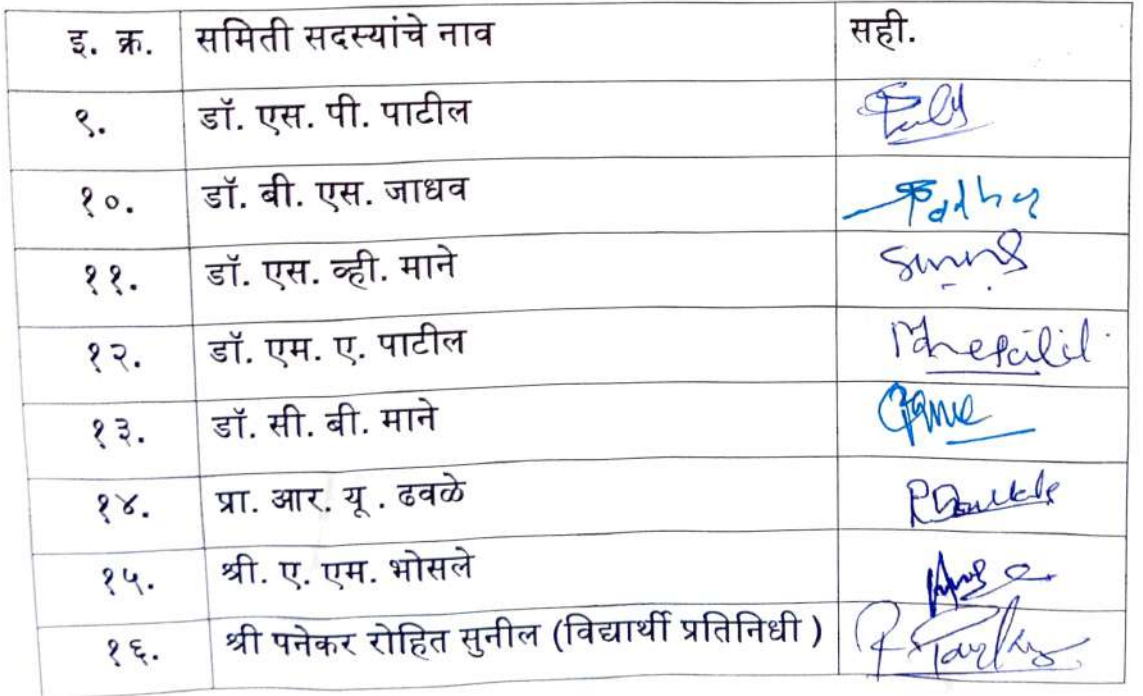 इ. क्र. समिती सदस्यांचे नाव सही.
९. डॉ. एस. पी. पाटील
१०. डॉ. बी. एस. जाधव
११. डॉ. एस. व्ही. माने
१२. डॉ. एम. ए. पाटील
१३. डॉ. सी. बी. माने
१४. प्रा. आर. यू . ढवळे
१५. श्री. ए. एम. भोसले
१६. श्री पनेकर रोहित सुनील (विद्यार्थी प्रतिनिधी )